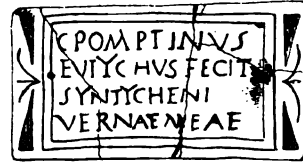 C POMPTINVS
EVTYCHVS FECIT
SYNTYCHENI
VERNAE MEAE